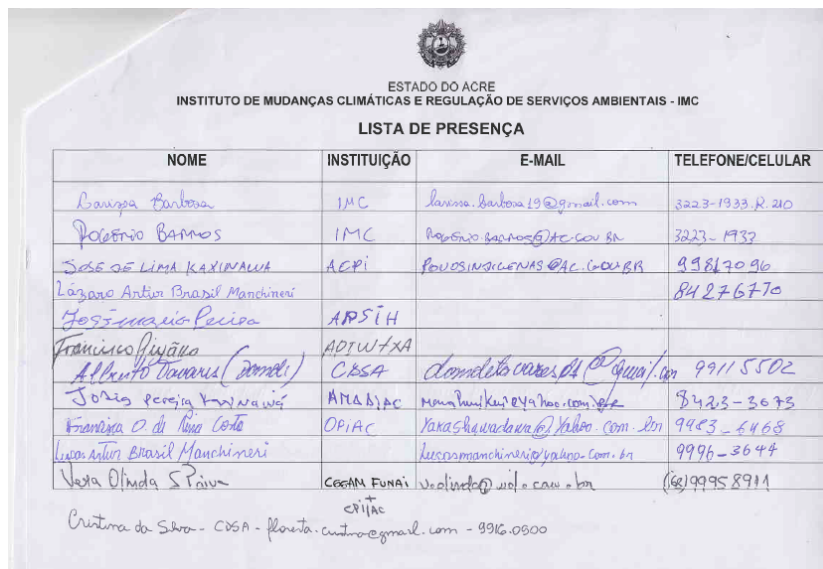 ESTADO DO ACRE
INSTITUTO DE MUDANÇAS CLIMÁTICAS E REGULAÇÃO DE SERVIÇOS AMBIENTAIS - IMC
LISTA DE PRESENÇA
NOME INSTITUIÇÃO E-MAIL TELEFONE/CELULAR
Larissa Barbosa IMC larissa.barbosa19@gmail.com 3223-1933.R.210
ROGÉRIO BARROS IMC ROGERIO.BARROS@AC.GOV.BR 3223-1933
JOSÉ DE LIMA KAXINAWA ACPI POVOSINDIGENAS@AC.GOV.BR 99817096
Lázaro Artur Brasil Manchineri 84276770
APSIH
Francisco
Alberto Tavares (Dande) CDSA 99115502
Josias Pereira Kaxinawá AMAAIAC 8423-3673
Francisca O. de Lima Costa OPIAC Yakashawadawa@Yahoo.com.br 9983-6468
Lucas Artur Brasil Manchineri lucasmanchineri@yahoo.com.br 9996-3644
Vera Olinda S Paiva CGGAM FUNAI + CPI/AC v.olinda@uol.com.br (68)99958911
Cristina da Silva - CDSA - floresta.cristina@gmail.com - 9916.0900